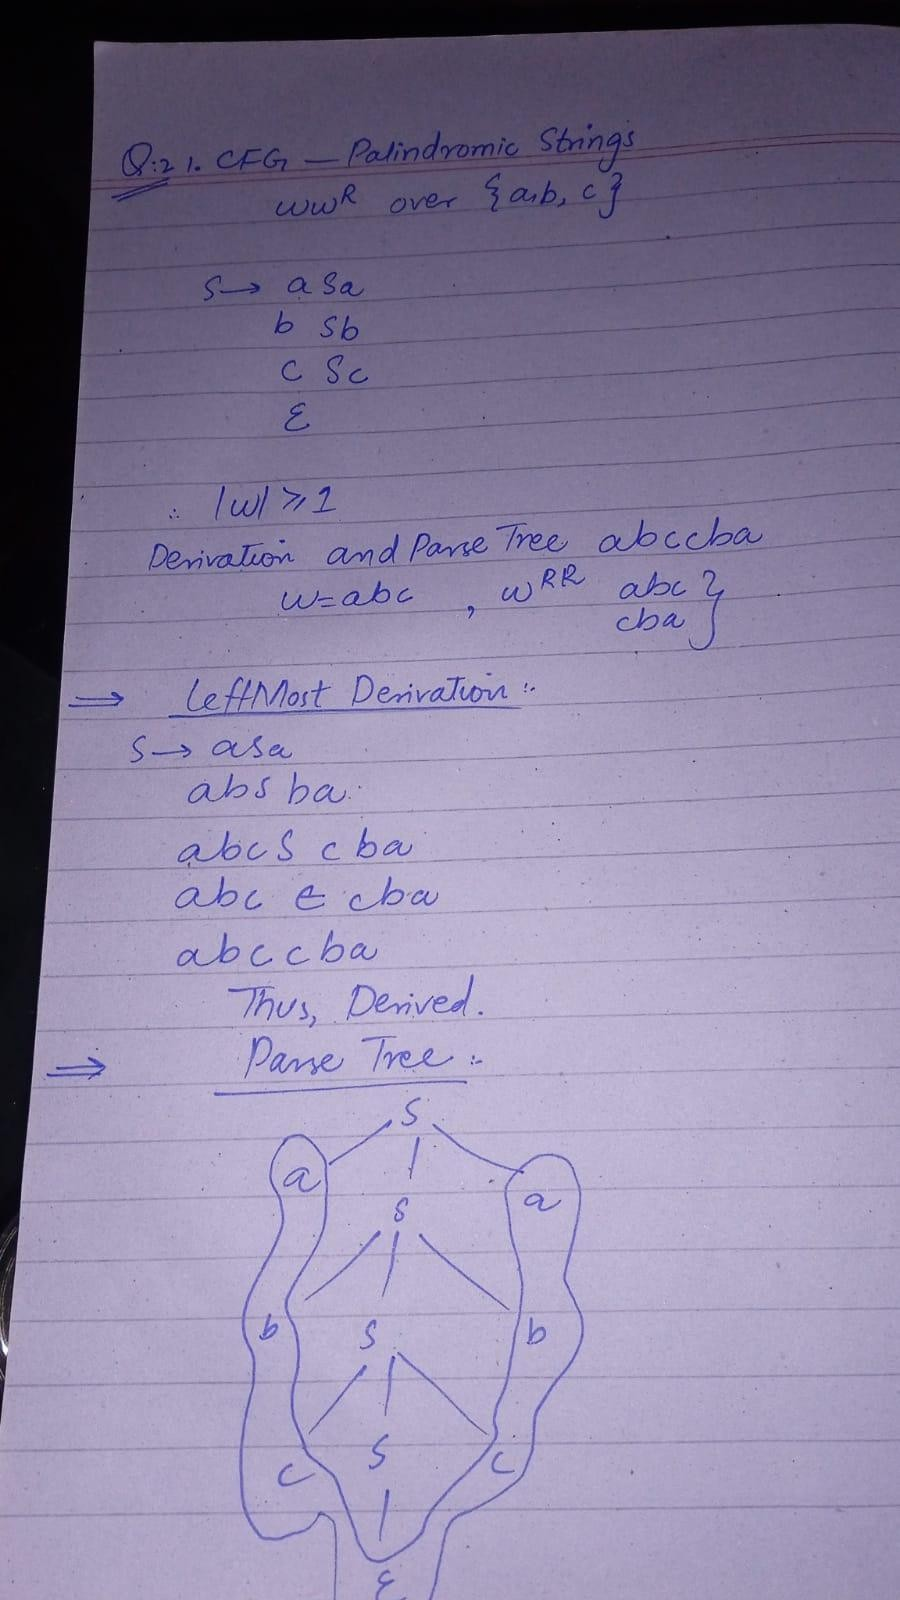 Q:2 1. CFG – Palindromic Strings
wwᴿ over {a,b, c}
S→ a Sa
b Sb
c Sc
ε
∴ |w| ≥ 1
Derivation and Parse Tree abccba
w=abc , wᴿᴿ abc }
cba }
⇒ LeftMost Derivation :-
S→ aSa
abS ba.
abcS cba
abc ε cba
abccba
Thus, Derived.
⇒ Parse Tree :-
S
a S a
b S b
c S c
ε